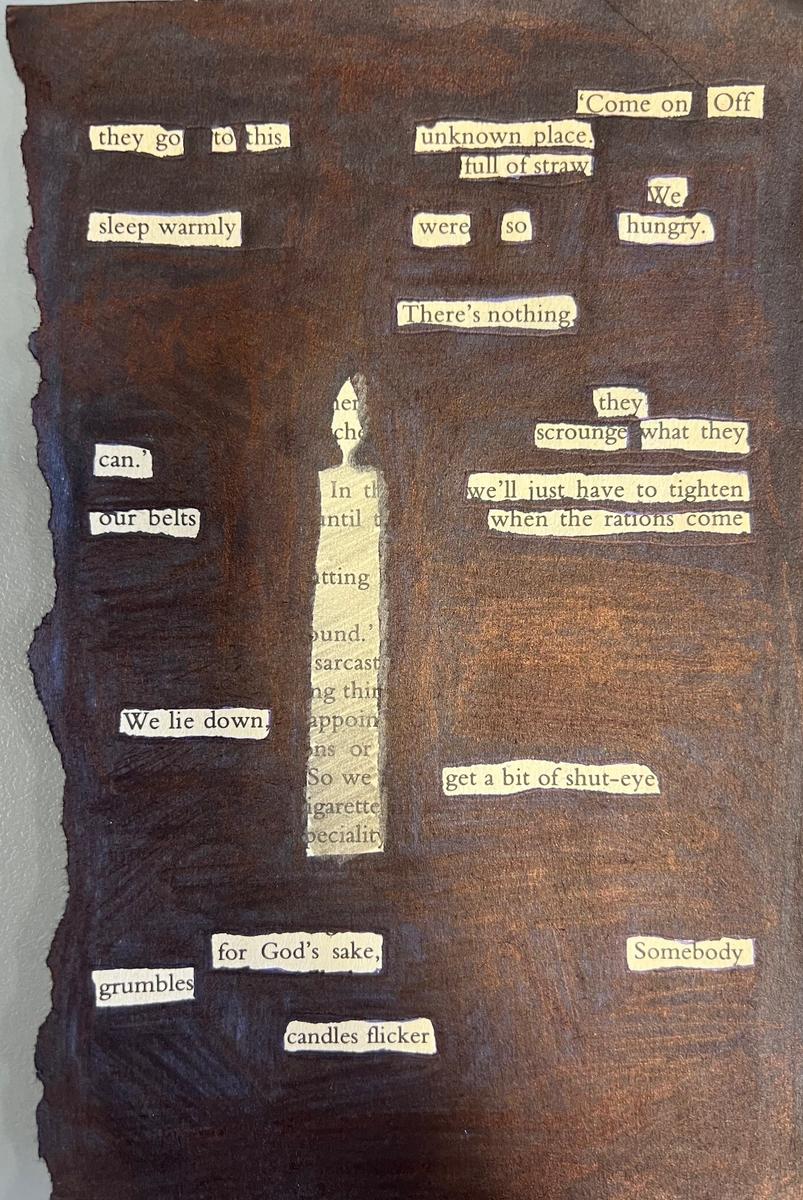 'Come on Off
they go to this unknown place.
full of straw
We
sleep warmly were so hungry.
There's nothing
they
scrounge what they
can.'
In
we'll just have to tighten
our belts when the rations come
sarcast
We lie down,
or
So we get a bit of shut-eye
for God's sake, Somebody
grumbles
candles flicker